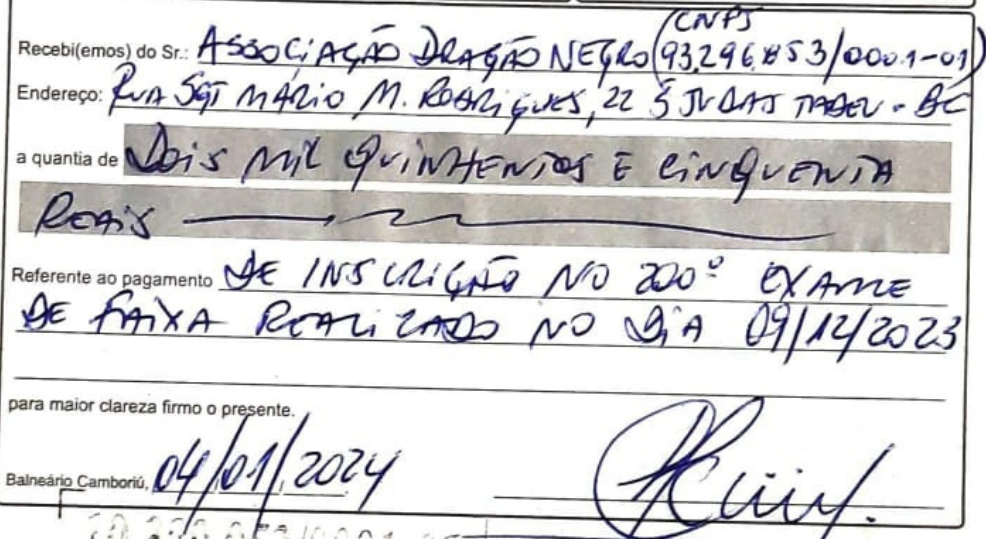 (CNPJ
Recebi(emos) do Sr.: ASSOCIAÇÃO DRAGÃO NEGRO 93.296.853/0001-01)
Endereço: RUA SGT MÁRIO M. RODRIGUES, 22 S JUDAS TADEU - BC
a quantia de DOIS MIL QUINHENTOS E CINQUENTA
REAIS
Referente ao pagamento DE INSCRIÇÃO NO 200º EXAME
DE FAIXA REALIZADO NO DIA 09/12/2023
para maior clareza firmo o presente.
Balneário Camboriú, 04/01/2024